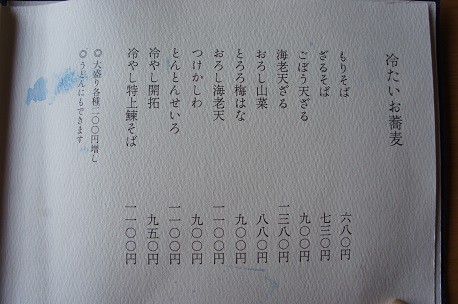 冷たいお蕎麦
もりそば 六八〇円
ざるそば 七三〇円
ごぼう天ざる 九〇〇円
海老天ざる 一三八〇円
おろし山菜 八八〇円
とろろ梅はな 九〇〇円
おろし海老天 一一〇〇円
つけかしわ 九〇〇円
とんとんせいろ 一一〇〇円
冷やし開拓 九五〇円
冷やし特上鰊そば 一一〇〇円
◎大盛り各種二〇〇円増し
◎うどんにもできます